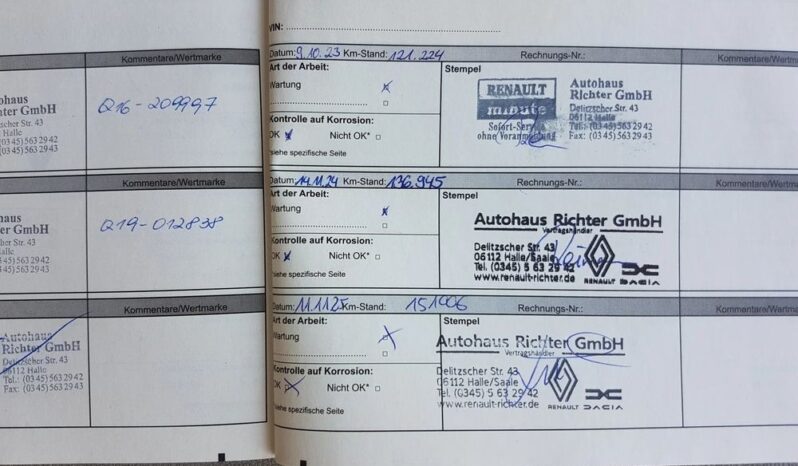 Kommentare/Wertmarke
ohaus
hter GmbH
her Str. 43
Halle
(0345) 563 29 42
(0345) 563 29 43
Q16-209997
Kommentare/Wertmarke
haus
ter GmbH
er Str. 43
Halle
(0345) 563 29 42
(0345) 563 29 43
Q19-012838
Kommentare/Wertmarke
Autohaus
Richter GmbH
Delitzscher Str. 43
06112 Halle
Tel.: (0345) 563 29 42
Fax: (0345) 563 29 43
VIN:
Datum: 9.10.23 Km-Stand: 121.224 Rechnungs-Nr.:
Art der Arbeit:
Wartung
Kontrolle auf Korrosion:
OK Nicht OK*
*siehe spezifische Seite
Stempel
RENAULT
minute
Sofort-Service
ohne Voranmeldung
Autohaus
Richter GmbH
Delitzscher Str. 43
06112 Halle
Tel.: (0345) 563 29 42
Fax: (0345) 563 29 43
Datum: 14.11.24 Km-Stand: 136.945 Rechnungs-Nr.:
Art der Arbeit:
Wartung
Kontrolle auf Korrosion:
OK Nicht OK*
*siehe spezifische Seite
Stempel
Autohaus Richter GmbH
Vertragshändler
Delitzscher Str. 43
06112 Halle/Saale
Tel. (0345) 5 63 29 42
www.renault-richter.de
RENAULT DACIA
Datum: 11.11.25 Km-Stand: 151406 Rechnungs-Nr.:
Art der Arbeit:
Wartung
Kontrolle auf Korrosion:
OK Nicht OK*
*siehe spezifische Seite
Stempel
Autohaus Richter GmbH
Vertragshändler
Delitzscher Str. 43
06112 Halle/Saale
Tel. (0345) 5 63 29 42
www.renault-richter.de
RENAULT DACIA